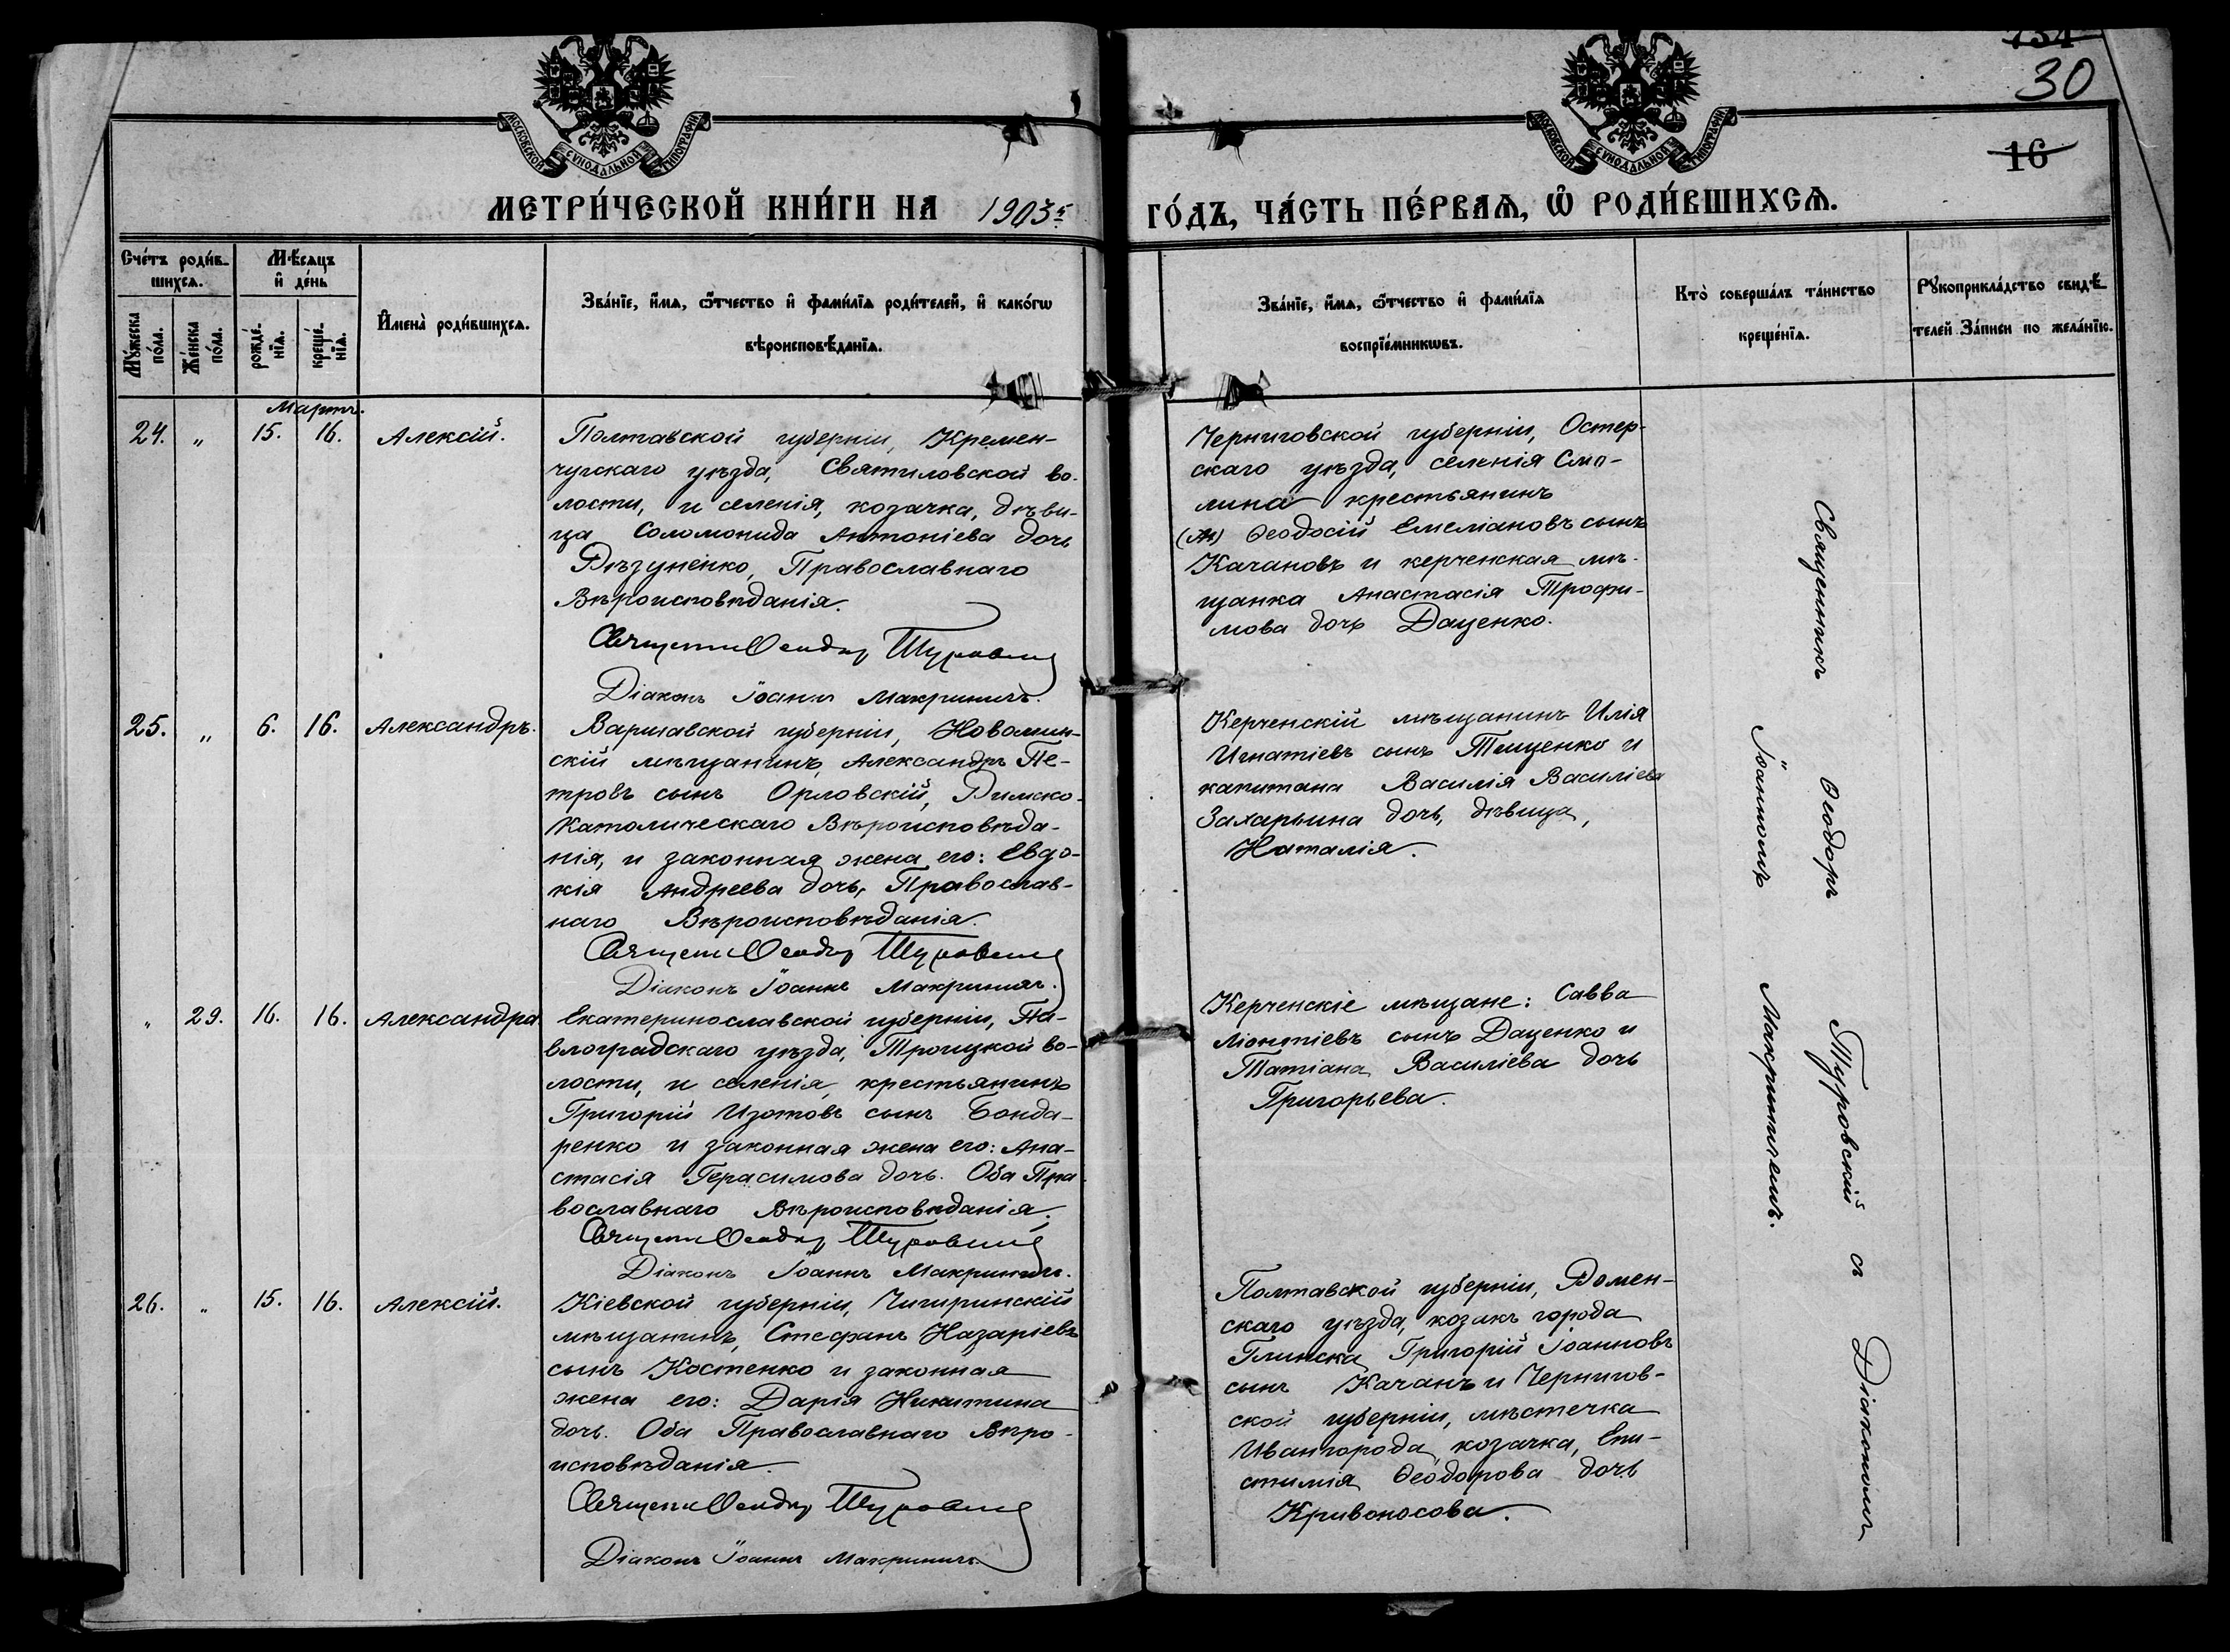 МОСКОВСКОЙ СѴНОДАЛЬНОЙ ТИПОГРАФІИ
МОСКОВСКОЙ СѴНОДАЛЬНОЙ ТИПОГРАФІИ
30
16
МЕТРИ́ЧЕСКОЙ КНИ́ГИ НА 1903й
ГО́ДЪ, ЧА́СТЬ ПЕ́РВАѦ, Ѡ РОДИ́ВШИХСѦ.
Сче́тъ роди́в-
шихсѧ.
Мѣ́сяцъ
и҆ де́нь
Мꙋ́жеска
по́ла.
Же́нска
по́ла.
рожде́-
нїѧ.
креще́-
нїѧ.
И҆мена̀ роди́вшихсѧ.
Зва́нїе, и҆́мѧ, ѻ҆́тчество и҆ фами́лїѧ роди́телей, и҆ како́гѡ
вѣроисповѣ́данїѧ.
Зва́нїе, и҆́мѧ, ѻ҆́тчество и҆ фами́лїѧ
воспрїе́мникѡвъ.
Кто̀ соверша́лъ та́инство
креще́нїѧ.
Рꙋкоприкла́дство свидѣ́-
телей за́писи по жела́нїю.
Мартъ.
24. „ 15. 16. Алексій.
Полтавской губерніи, Кремен-
чугскаго уѣзда, Святиловской во-
лости, и селенія, козачка, дѣви-
ца Соломонида Антоніева дочь
Рѣзуненко, Православнаго
Вѣроисповѣданія.
Священ. Ѳеодоръ Туровскій
Діаконъ Іоаннъ Макриничъ.
Черниговской губерніи, Остер-
скаго уѣзда, селенія Смо-
лина крестьянинъ
Ѳеодосій Емеліановъ сынъ
Качановъ и керченская мѣ-
щанка Анастасія Трофи-
мова дочь Даценко.
25. „ 6. 16. Александръ.
Варшавской губерніи, Новомин-
скій мѣщанинъ, Александръ Пе-
тровъ сынъ Орловскій, Римско-
Католическаго Вѣроисповѣда-
нія, и законная жена его: Евдо-
кія Андреева дочь, Православ-
наго Вѣроисповѣданія.
Священ. Ѳеодоръ Туровскій
Діаконъ Іоаннъ Макриничъ.
Керченскій мѣщанинъ Илія
Игнатіевъ сынъ Тищенко и
капитана Василія Василіева
Захарьина дочь, дѣвица,
Наталія.
„ 29. 16. 16. Александра
Екатеринославской губерніи, Па-
влоградскаго уѣзда, Троицкой во-
лости, и селенія, крестьянинъ
Григорій Изотовъ сынъ Бонда-
ренко и законная жена его: Ана-
стасія Герасимова дочь. Оба Пра-
вославнаго Вѣроисповѣданія.
Священ. Ѳеодоръ Туровскій
Діаконъ Іоаннъ Макриничъ.
Керченскіе мѣщане: Савва
Ліонтіевъ сынъ Даценко и
Татіана Василіева дочь
Григорьева.
26. „ 15. 16. Алексій.
Кіевской губерніи, Чигиринскій
мѣщанинъ, Стефанъ Назаріевъ
сынъ Костенко и законная
жена его: Дарія Никитина
дочь. Оба Православнаго Вѣро-
исповѣданія.
Священ. Ѳеодоръ Туровскій
Діаконъ Іоаннъ Макриничъ.
Полтавской губерніи, Ромен-
скаго уѣзда, козакъ города
Глинска, Григорій Іоанновъ
сынъ Качанъ и Чернигов-
ской губерніи, мѣстечка
Ивангорода, козачка, Епи-
стимія Ѳеодорова дочь
Кривоносова.
Священникъ Ѳеодоръ Туровскій съ Діакономъ
Іоанномъ Макриничемъ.